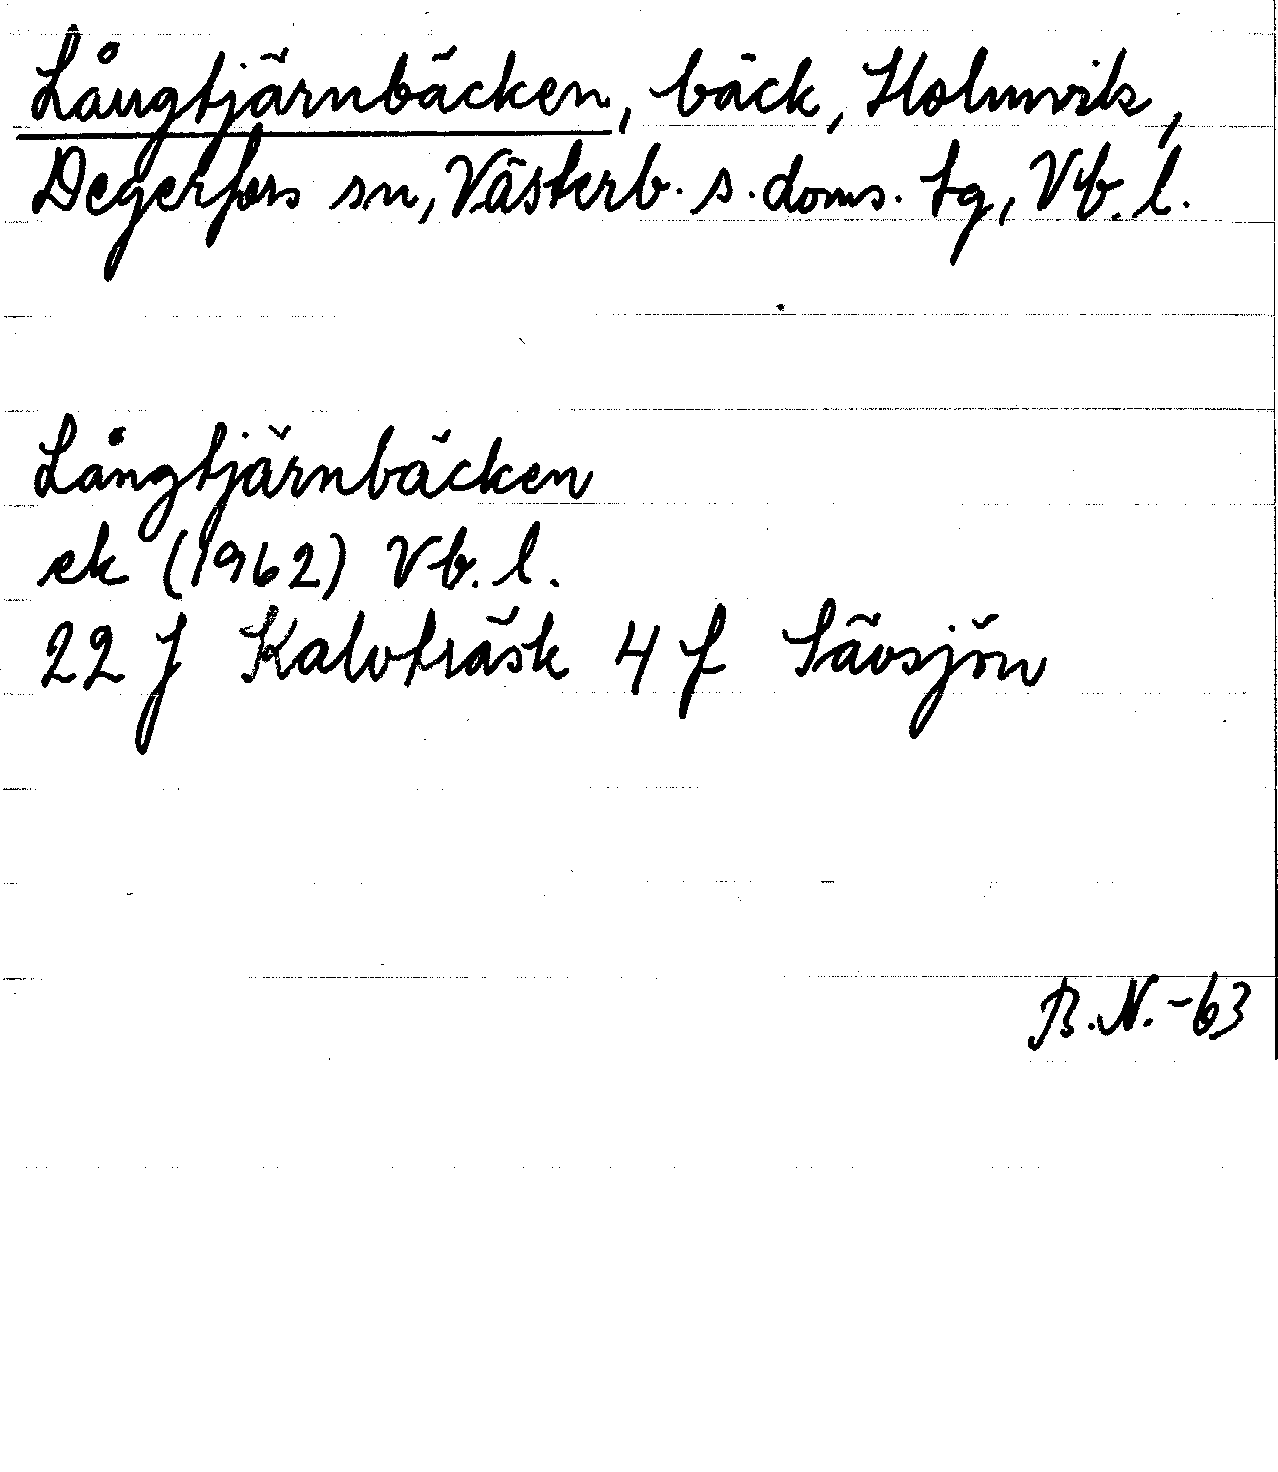 Långtjärnbäcken, bäck, Holmvik,
Degerfors sn, Västerb. s. doms. tg, Vb. l.
Långtjärnbäcken
ek (1962) Vb. l.
22 J Kalvträsk 4 f Sävsjön
B.N.-63